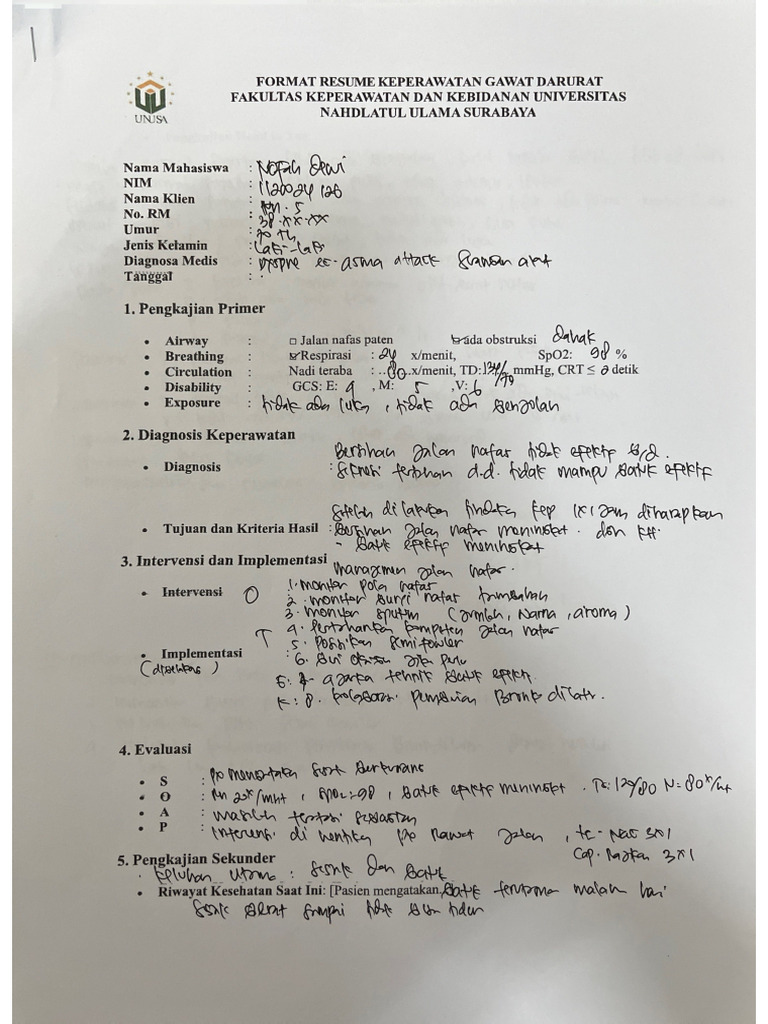 FORMAT RESUME KEPERAWATAN GAWAT DARURAT
FAKULTAS KEPERAWATAN DAN KEBIDANAN UNIVERSITAS
NAHDLATUL ULAMA SURABAYA
UNUSA
Nama Mahasiswa : Dewi
NIM : 1120024126
Nama Klien : Tn. S
No. RM : 38.xx.xx
Umur : 70 th
Jenis Kelamin : Laki-Laki
Diagnosa Medis : Dyspne ec. asma attack
Tanggal : .
1. Pengkajian Primer
• Airway : □ Jalan nafas paten ☑ ada obstruksi Dahak
• Breathing : ☑ Respirasi : 24 x/menit, SpO2: 98 %
• Circulation : Nadi teraba : ..80..x/menit, TD: mmHg, CRT ≤ 2 detik
• Disability : GCS: E: 4 , M: 5 ,V: 6
• Exposure : tidak ada luka , tidak ada benjolan
2. Diagnosis Keperawatan
Bersihan jalan nafas tidak efektif b/d.
• Diagnosis : Sekresi tertahan d.d. tidak mampu batuk efektif
Setelah dilakukan tindakan kep 1x1 jam diharapkan
• Tujuan dan Kriteria Hasil : Bersihan jalan nafas meningkat. dgn KH:
- batuk efektif meningkat
3. Intervensi dan Implementasi
Manajemen jalan nafas.
• Intervensi O 1. monitor pola nafas
2. monitor bunyi nafas tambahan
3. monitor sputum (jumlah, warna, aroma)
T 4. pertahankan kepatenan jalan nafas
• Implementasi : 5. Posisikan semifowler
6. beri oksigen jika perlu
E: 7. ajarkan tehnik batuk efektif.
K: 8. kolaborasi pemberian Bronkodilator.
4. Evaluasi
• S : px mengatakan sesak berkurang
• O : RR 20x/mnt , SpO2: 98 , batuk efektif meningkat. TD: 129/80 N: 80x/mt
• A : masalah teratasi sebagian
• P : Intervensi di hentikan px rawat jalan , 3x1
Cap. 3x1
5. Pengkajian Sekunder
• Keluhan utama : Sesak dan batuk
• Riwayat Kesehatan Saat Ini: [Pasien mengatakan, batuk terutama malam hari
Sesak berat sampai tidak bisa tidur